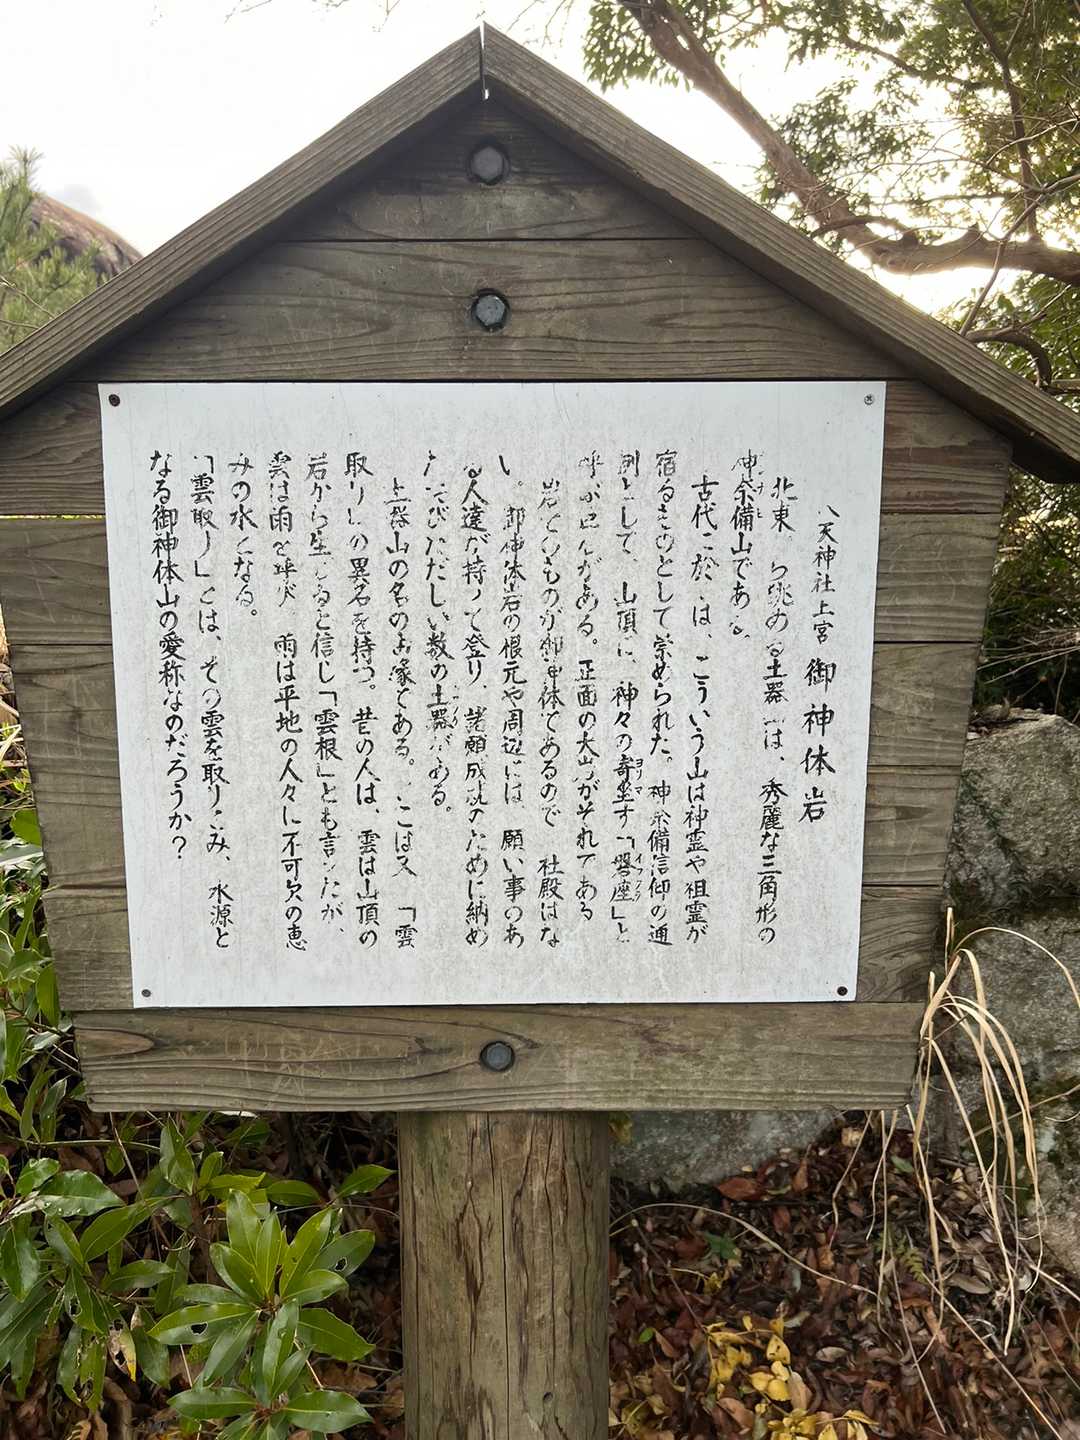 八天神社上宮 御神体岩
北東 ら眺める土器 は、秀麗な三角形の
神奈備山である。
古代に於 は、こういう山は神霊や祖霊が
宿るものとして崇められた。神奈備信仰の通
例として、山頂に、神々の寄坐す「磐座」と
呼 がある。正面の大岩がそれである
岩そのものが御神体であるので 社殿はな
い。御神体岩の根元や周辺には 願い事のあ
る人達が持って登り、諸願成就のために納め
たおびただしい数の土器がある。
土器山の名の由縁である。ここは又、「雲
取り」の異名を持つ。昔の人は、雲は山頂の
岩から生じると信じ「雲根」とも言ったが、
雲は雨を呼び 雨は平地の人々に不可欠の恵
みの水となる。
「雲取り」とは、その雲を取りこみ、水源と
なる御神体山の愛称なのだろうか?